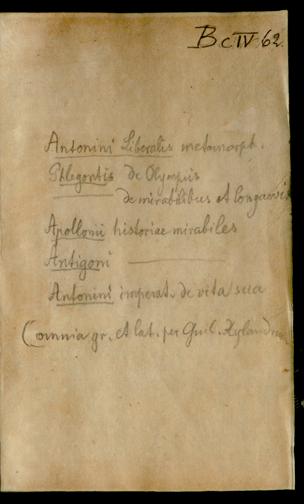 Bc IV 62.
Antonini Liberalis metamorph.
Phlegontis de Olympiis
de mirabilibus et longaevis
Apollonii historiae mirabiles
Antigoni ————
Antonini imperat. de vita sua
(omnia gr. et lat. per Guil. Xylandrum